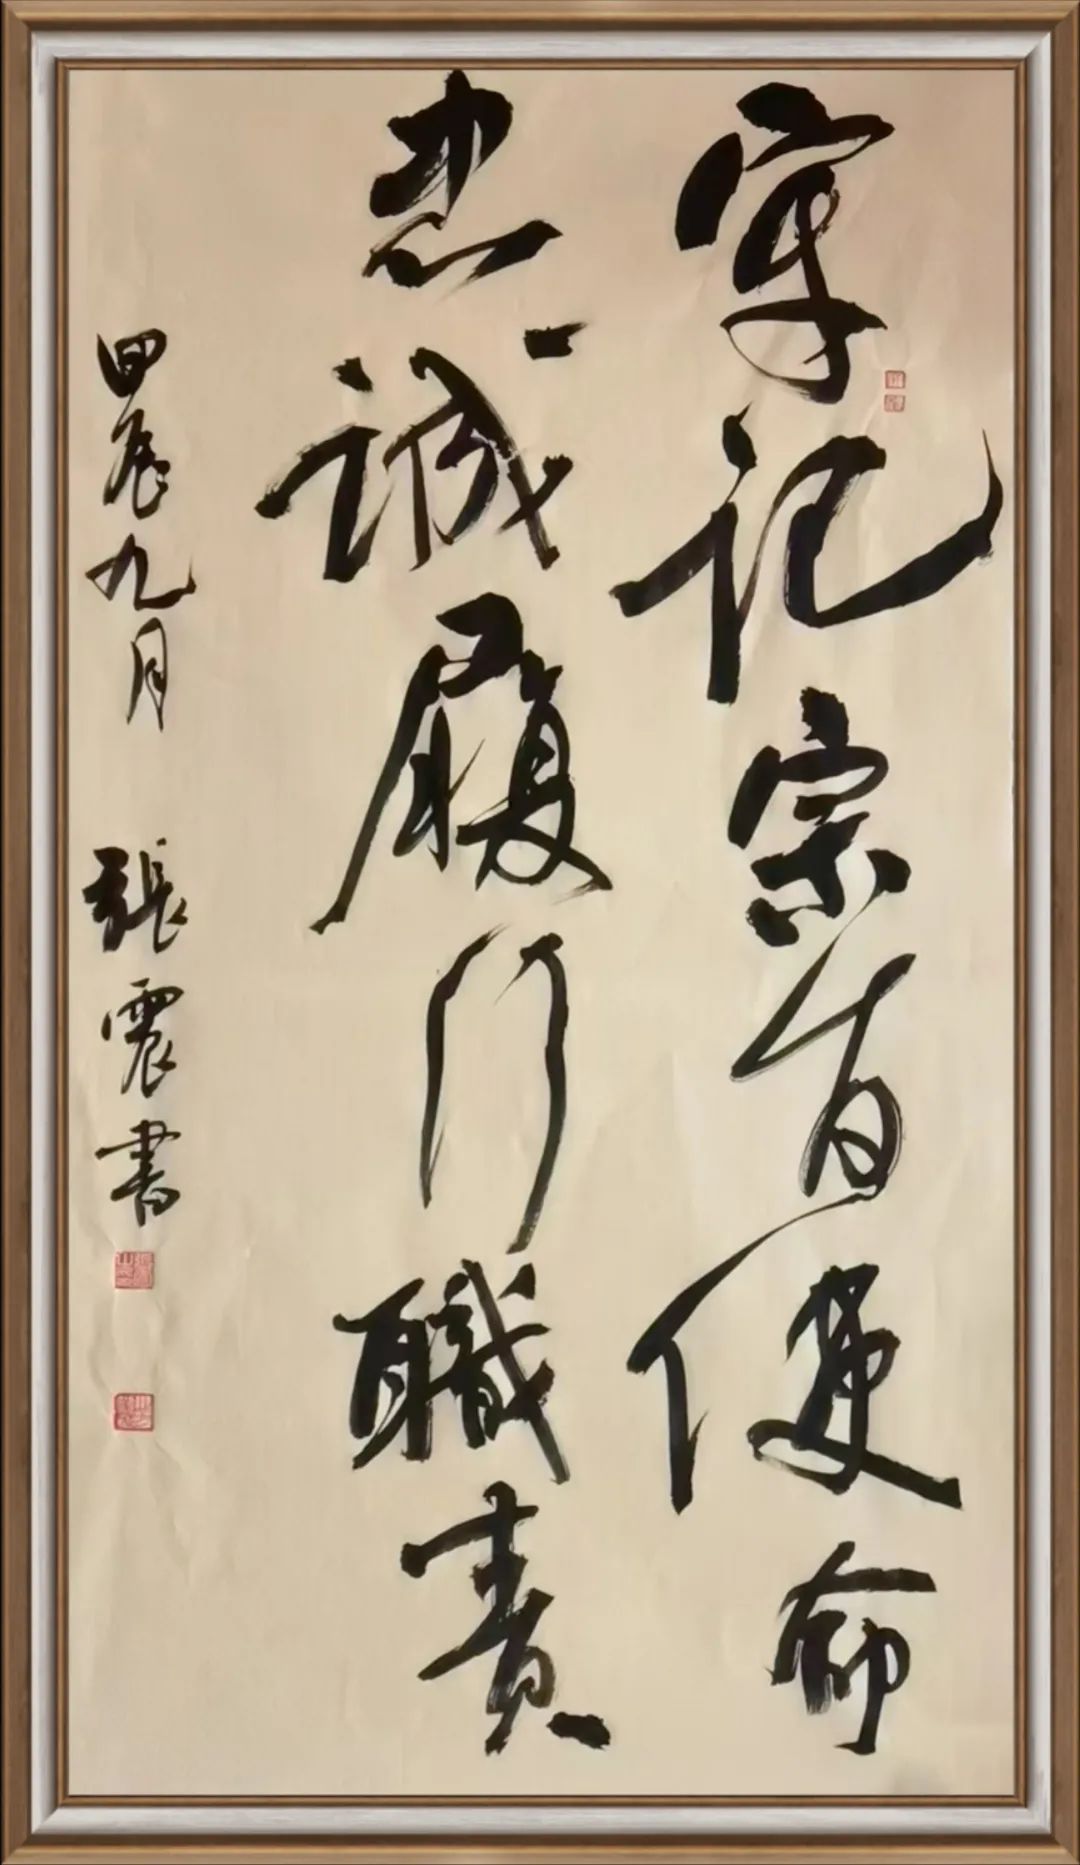 牢记宗旨使命
忠诚履行職责
甲辰九月 張震書